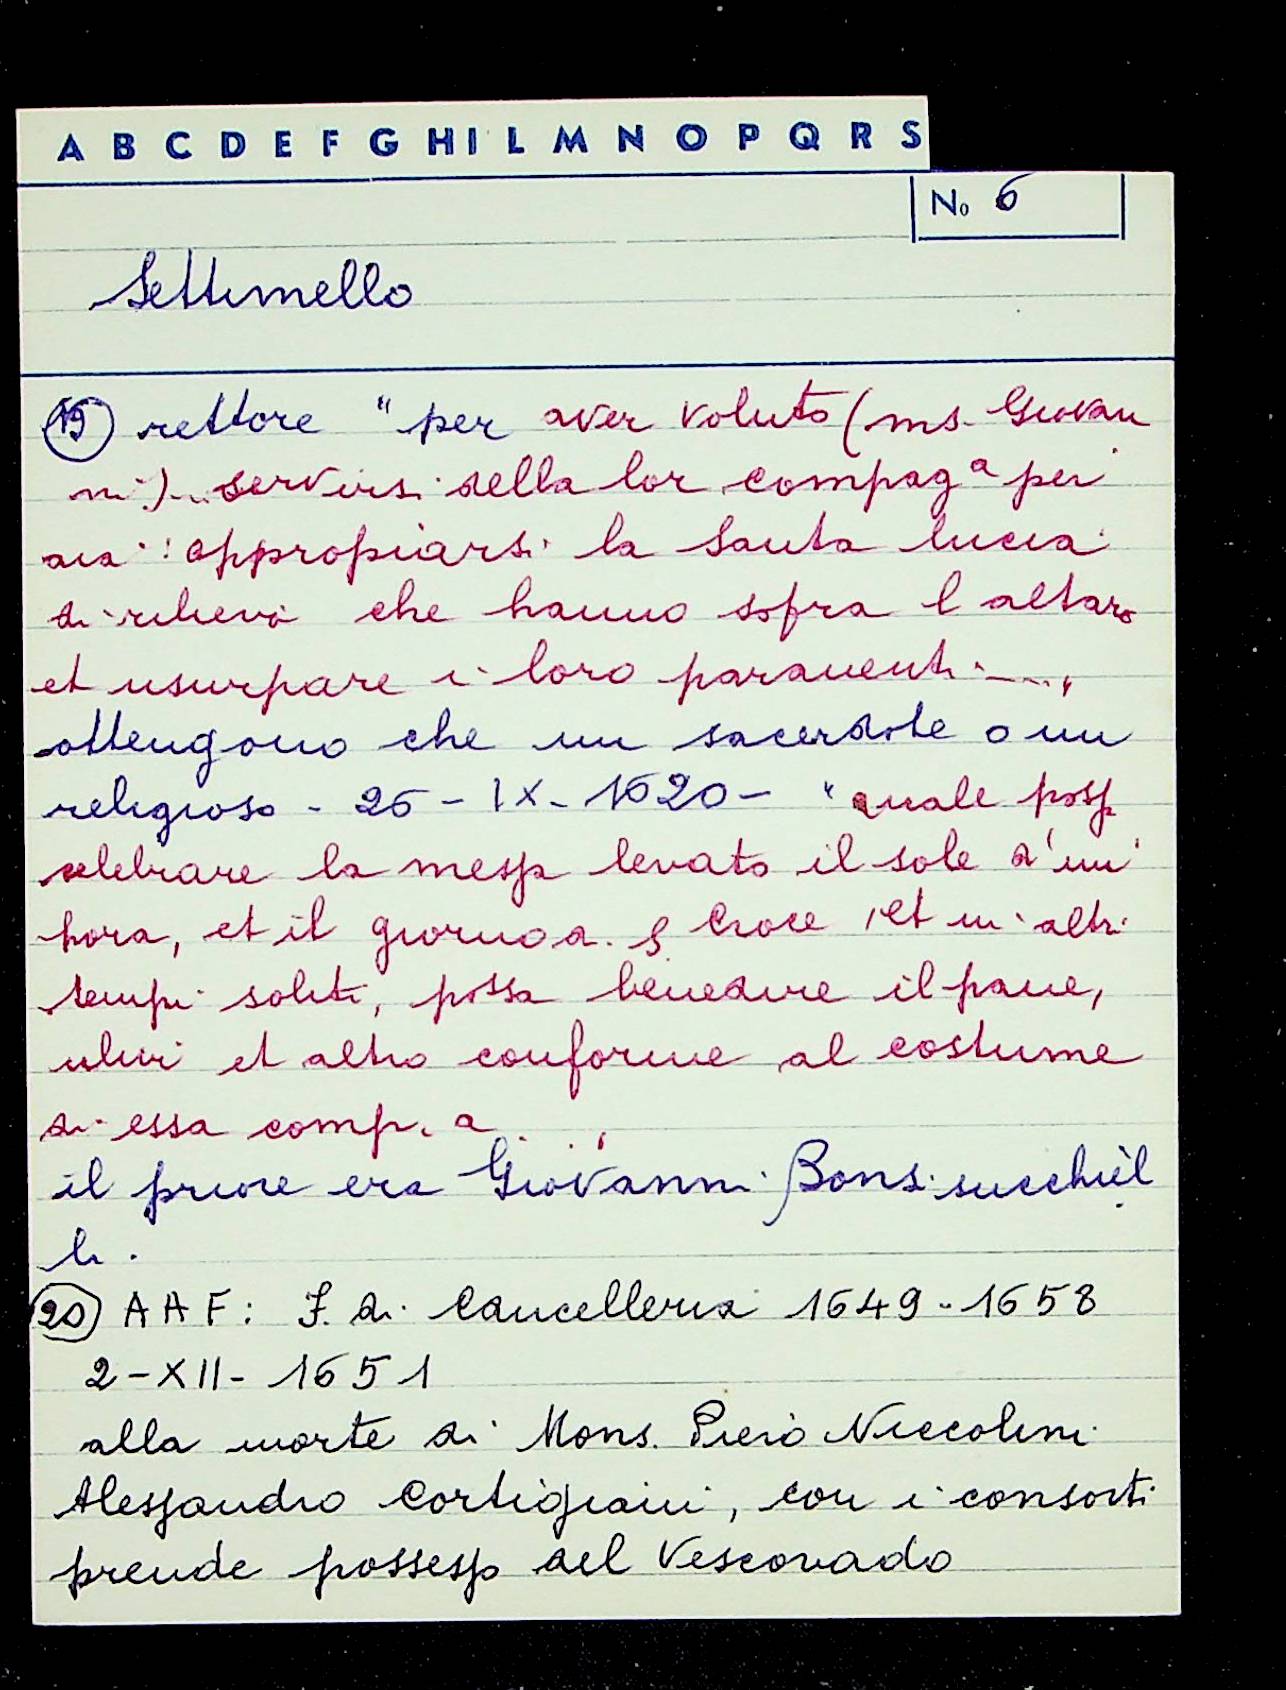 A B C D E F G H I L M N O P Q R S
No 6
Settimello
19 rettore " per aver voluto (ms. Giovan
ni)... servirsi della lor compag.a per
appropiarsi la Santa Lucia
di rilievo che hanno sopra l altare
et usurpare i loro paramenti ....,
ottengono che un sacerdote o un
religioso - 26 - IX - 1620 - " quale possa
celebrare la messa levato il sole d'un'
hora, et il giorno a. S Croce, et in altri
tempi soliti, possa benedire il pane,
ulivi et altro conforme al costume
di essa comp. a ...,
il priore era Giovanni Bonsi succhiel
li.
20 A A F: F. di Cancelleria 1649-1658
2-XII-1651
alla morte di Mons. Piero Niccolini
Alessandro Cortigiani, con i consorti
prende possesso del Vescovado